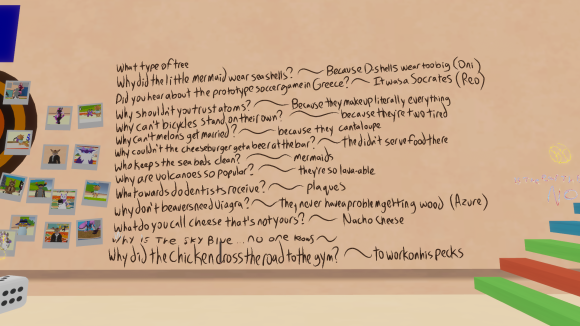 What type of tree
Why did the little mermaid wear seashells? ~ Because D-shells wear too big (Oni)
Did you hear about the prototype soccer game in Greece? ~ It was a Socrates (Reo)
Why shouldn't you trust atoms? ~ Because they make up literally everything
Why can't bicycles stand on their own? ~ because they're two tired
Why can't melons get married? ~ because they cantaloupe
Why couldn't the cheeseburger get a beer at the bar? ~ the didn't serve food there
Who keeps the sea beds clean? ~ mermaids
Why are volcanoes so popular? ~ they're so lava-able
What awards do dentists receive? ~ plaques
Why don't beavers need Viagra? ~ They never have a problem getting wood (Azure)
What do you call cheese that's not yours? ~ Nacho Cheese
Why is the sky blue... no one knows ~
Why did the chicken cross the road to the gym? ~ to work on his pecks